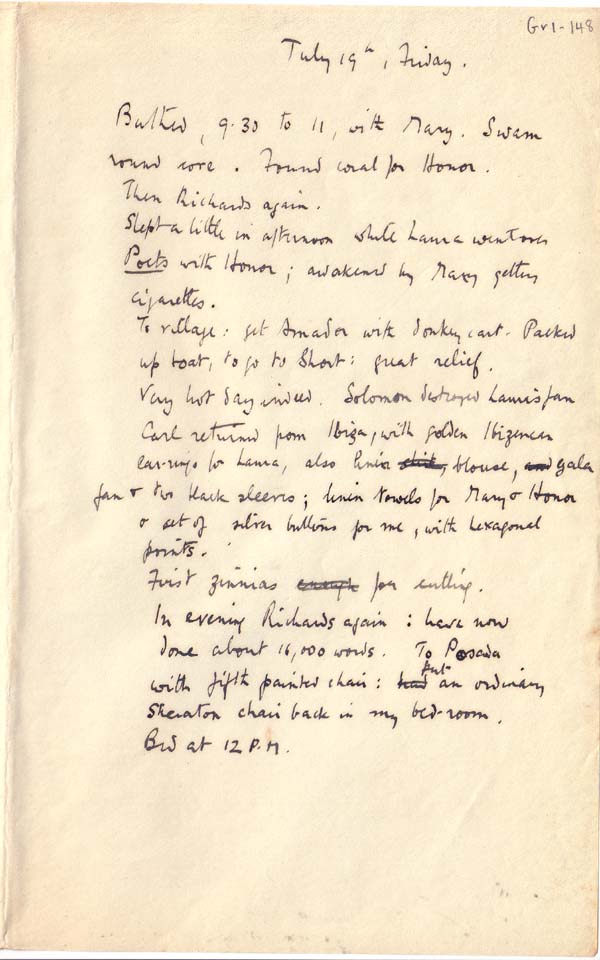 Gr1-148
July 19th, Friday.
Bathed, 9.30 to 11, with Mary. Swam
round cove. Found coral for Honor.
Then Richards again.
Slept a little in afternoon while Laura went over
Poets with Honor; awakened by Mary getting
cigarettes.
To village: get Amador with donkey cart. Packed
up boat, to go to Short: great relief.
Very hot day indeed. Solomon destroyed Laura's fan
Carl returned from Ibiza, with golden Ibizencan
ear-rings for Laura, also linen skirt, blouse, and gala
fan & two black sleeves; linen towels for Mary & Honor
& set of silver buttons for me, with hexagonal
points.
First zinnias enough for cutting.
In evening Richards again: have now
done about 16,000 words. To Posada
with fifth painted chair: had put an ordinary
Sheraton chair back in my bed-room.
Bed at 12 P.M.